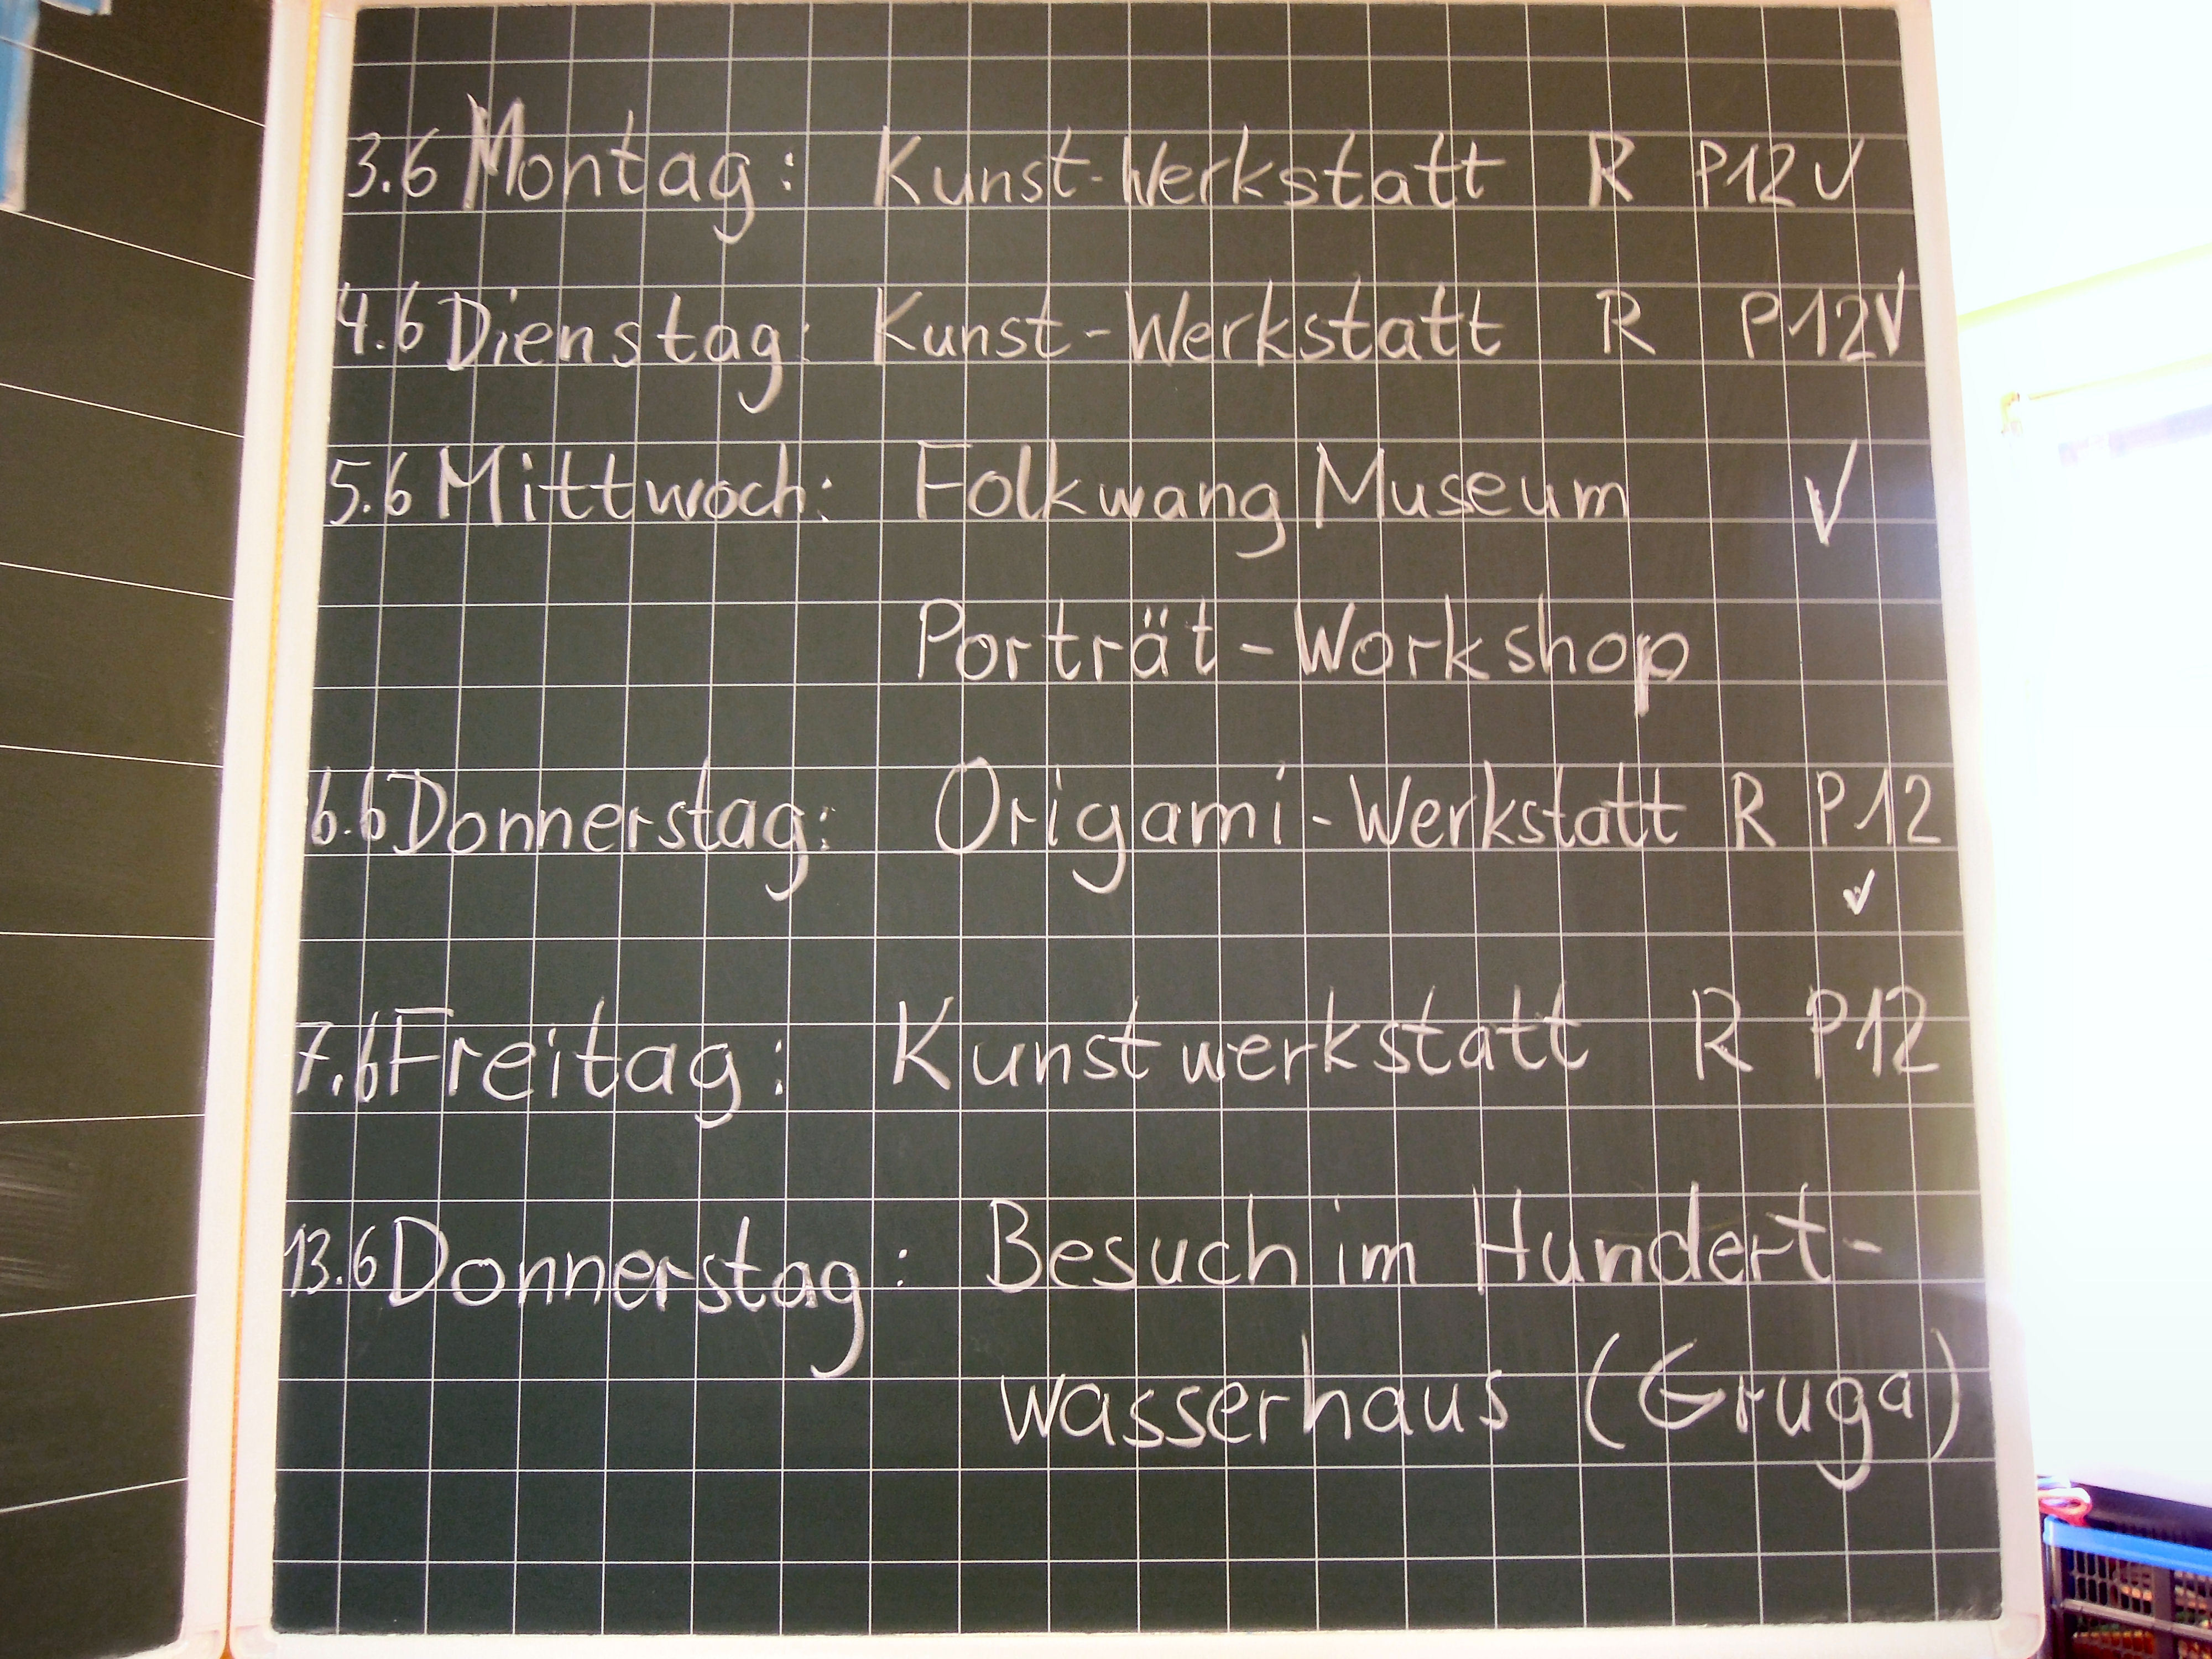 3.6 Montag: Kunst-Werkstatt R P12 ✓
4.6 Dienstag: Kunst-Werkstatt R P12 ✓
5.6 Mittwoch: Folkwang Museum ✓
Porträt-Workshop
6.6 Donnerstag: Origami-Werkstatt R P12
✓
7.6 Freitag: Kunstwerkstatt R P12
13.6 Donnerstag: Besuch im Hundert-
wasserhaus (Gruga)